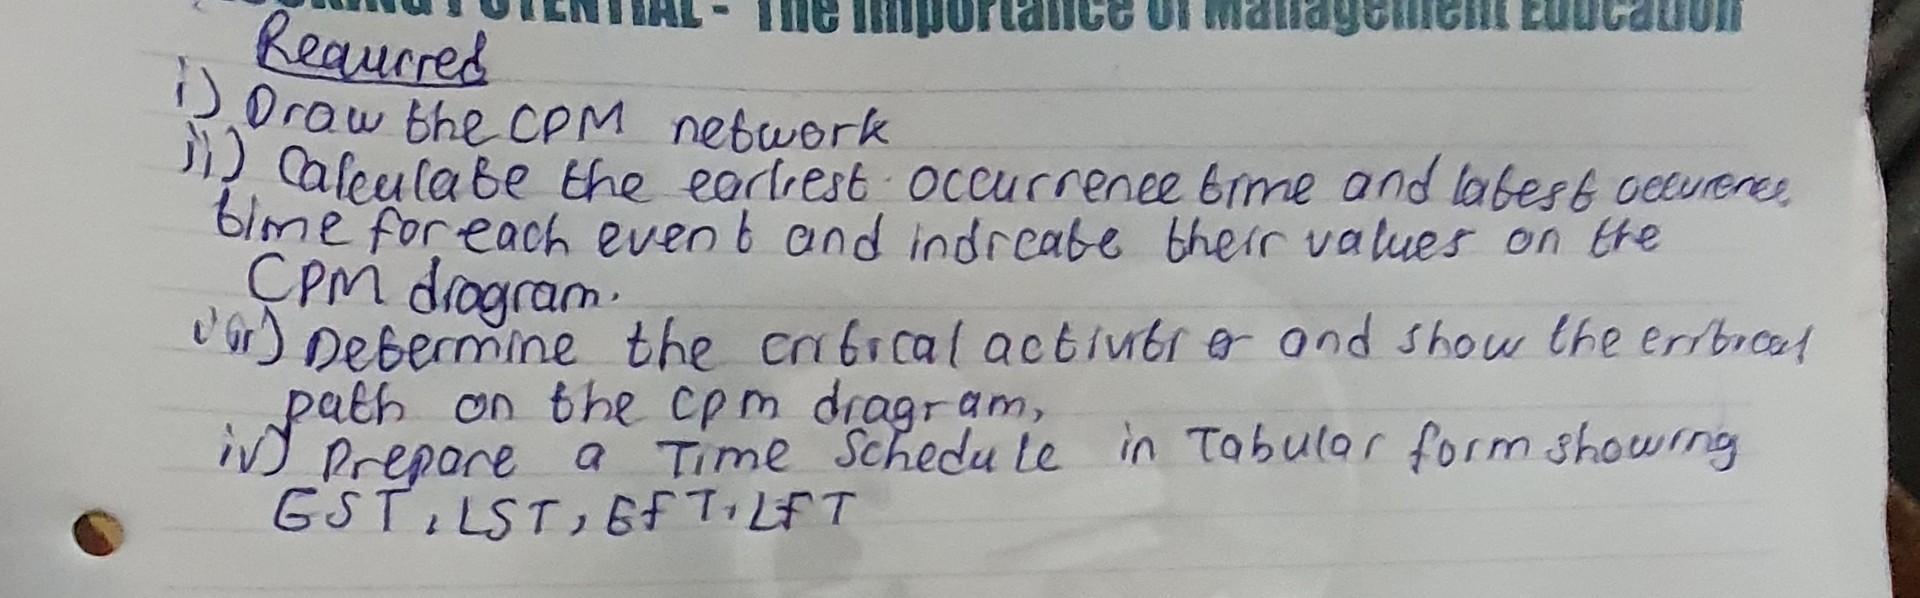 POTENTIAL - The Importance of Management Education
Requrred
i) Draw the CPM network
ii) Calculate the earliest occurrence time and latest occurence
time for each event and indicate their values on the
CPM diagram.
iii) Determine the critical activiti or and show the critical
path on the cpm diagram,
iv) Prepare a Time Schedule in Tabular form showing
EST, LST, EFT, LFT